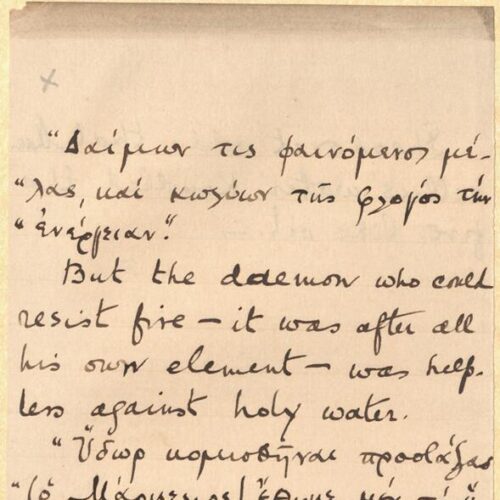 "Δαίμων τις φαινόμενος μέ-
"λας, καί κωλύων τῆς φλογός τήν
"ἐνέργειαν".
But the daemon who could
resist fire — it was after all
his own element — was help-
less against holy water.
"Ὕδωρ κομισθῆναι προστάξας
(ὁ Μάρκελλος) ἔθηκε